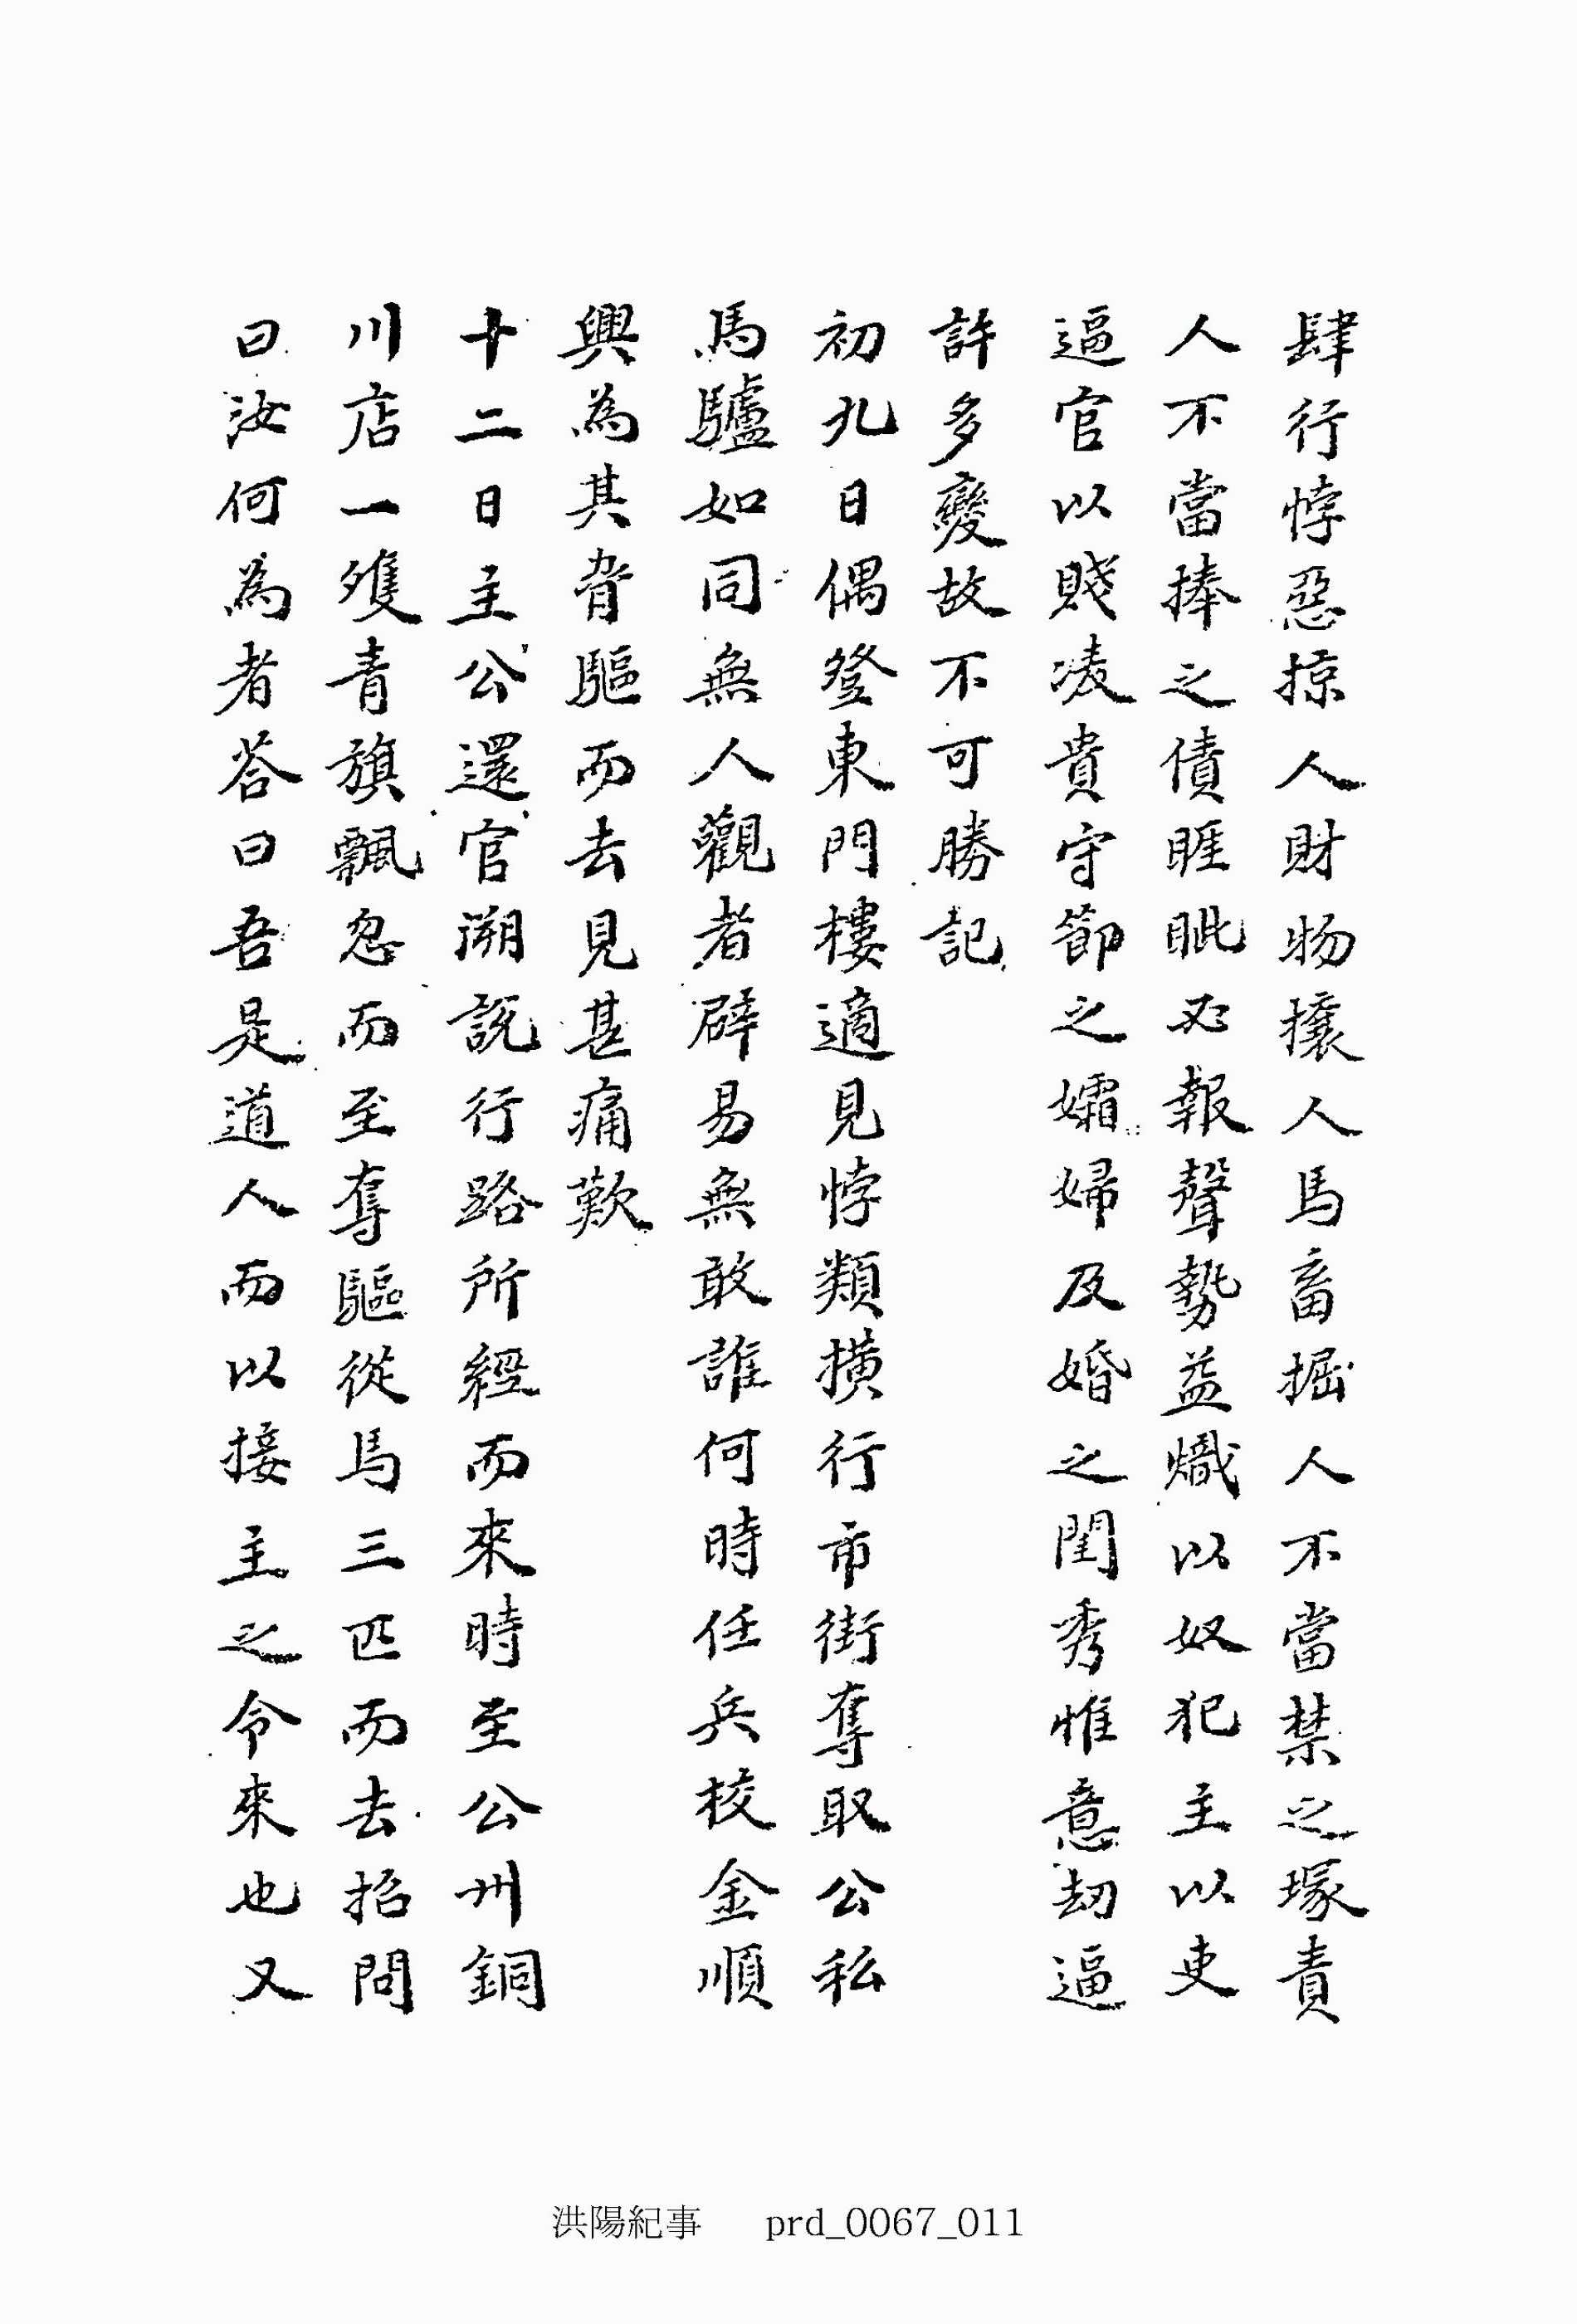 肆行悖惡掠人財物攘人馬畜掘人不當禁之塚責
人不當捧之債睚眦必報聲勢益熾以奴犯主以吏
逼官以賤凌貴守節之孀婦及婚之閨秀惟意刼逼
許多變故不可勝記
初九日偶登東門樓適見悖類撗行市街奪取公私
馬驢如同無人觀者辟易無敢誰何時任兵校金順
興為其脅驅而去見甚痛歎
十二日主公還官溯說行路所經而來時至公州銅
川店一雙青旗飄忽而至奪驅從馬三匹而去招問
曰汝何為者答曰吾是道人而以接主之令來也又
洪陽紀事 prd_0067_011